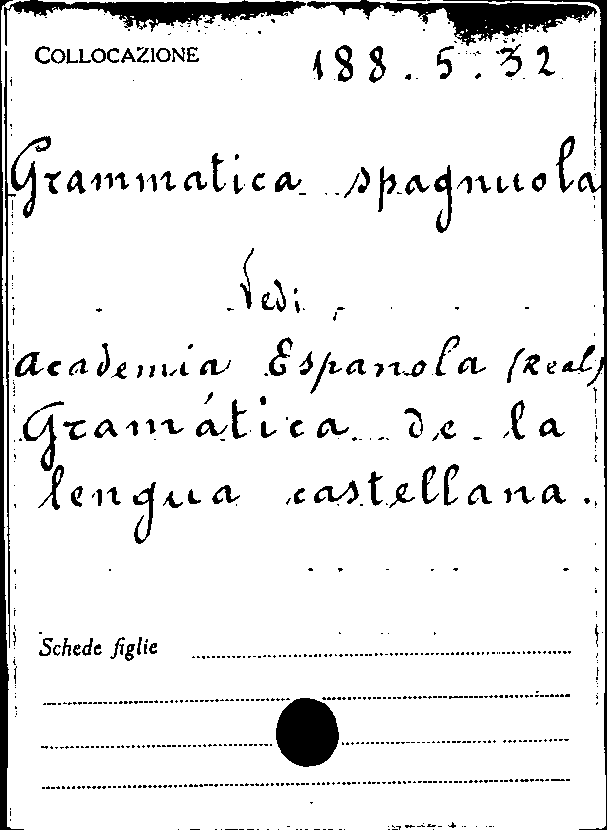 COLLOCAZIONE 188.5.32
Grammatica spagnuola
Vedi
Academia Espanola (Real)
Gramática de la
lengua castellana.
Schede figlie